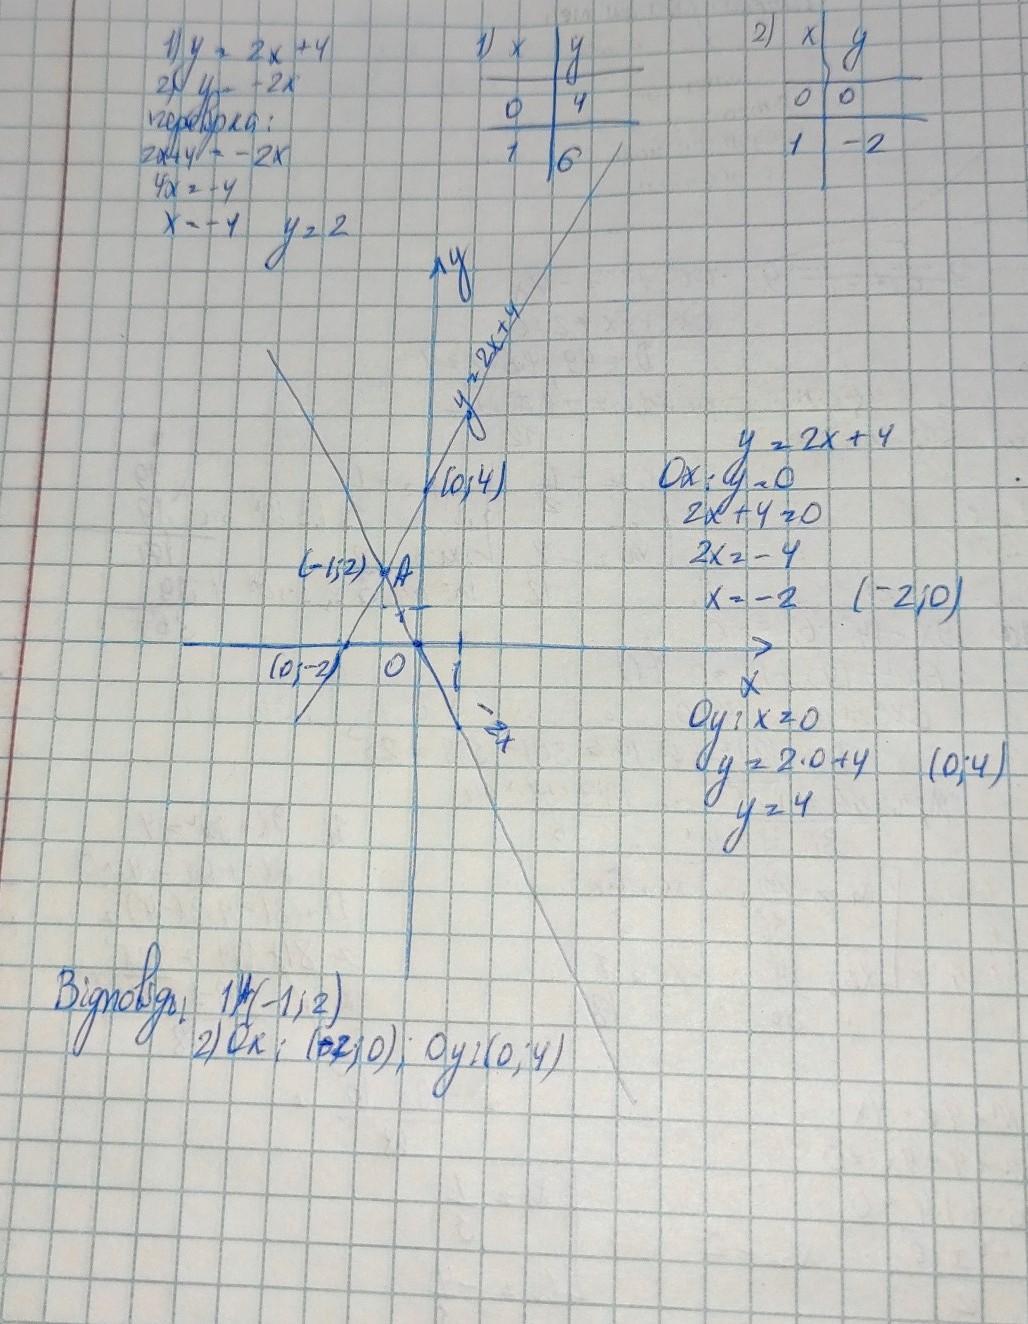 1) y = 2x + 4
2) y = -2x
перевірка:
2x+4 = -2x
4x = -4
x = -1 y = 2
1) x y
0 4
1 6
2) x y
0 0
1 -2
y
y = 2x+4
(0;4)
(-1;2) A
(0;-2) 0 1
x
-2x
y = 2x + 4
Ox: y = 0
2x + 4 = 0
2x = -4
x = -2 (-2;0)
Oy: x = 0
y = 2·0+4 (0;4)
y = 4
Відповідь: 1) A(-1;2)
2) Ox: (-2;0); Oy: (0;4)